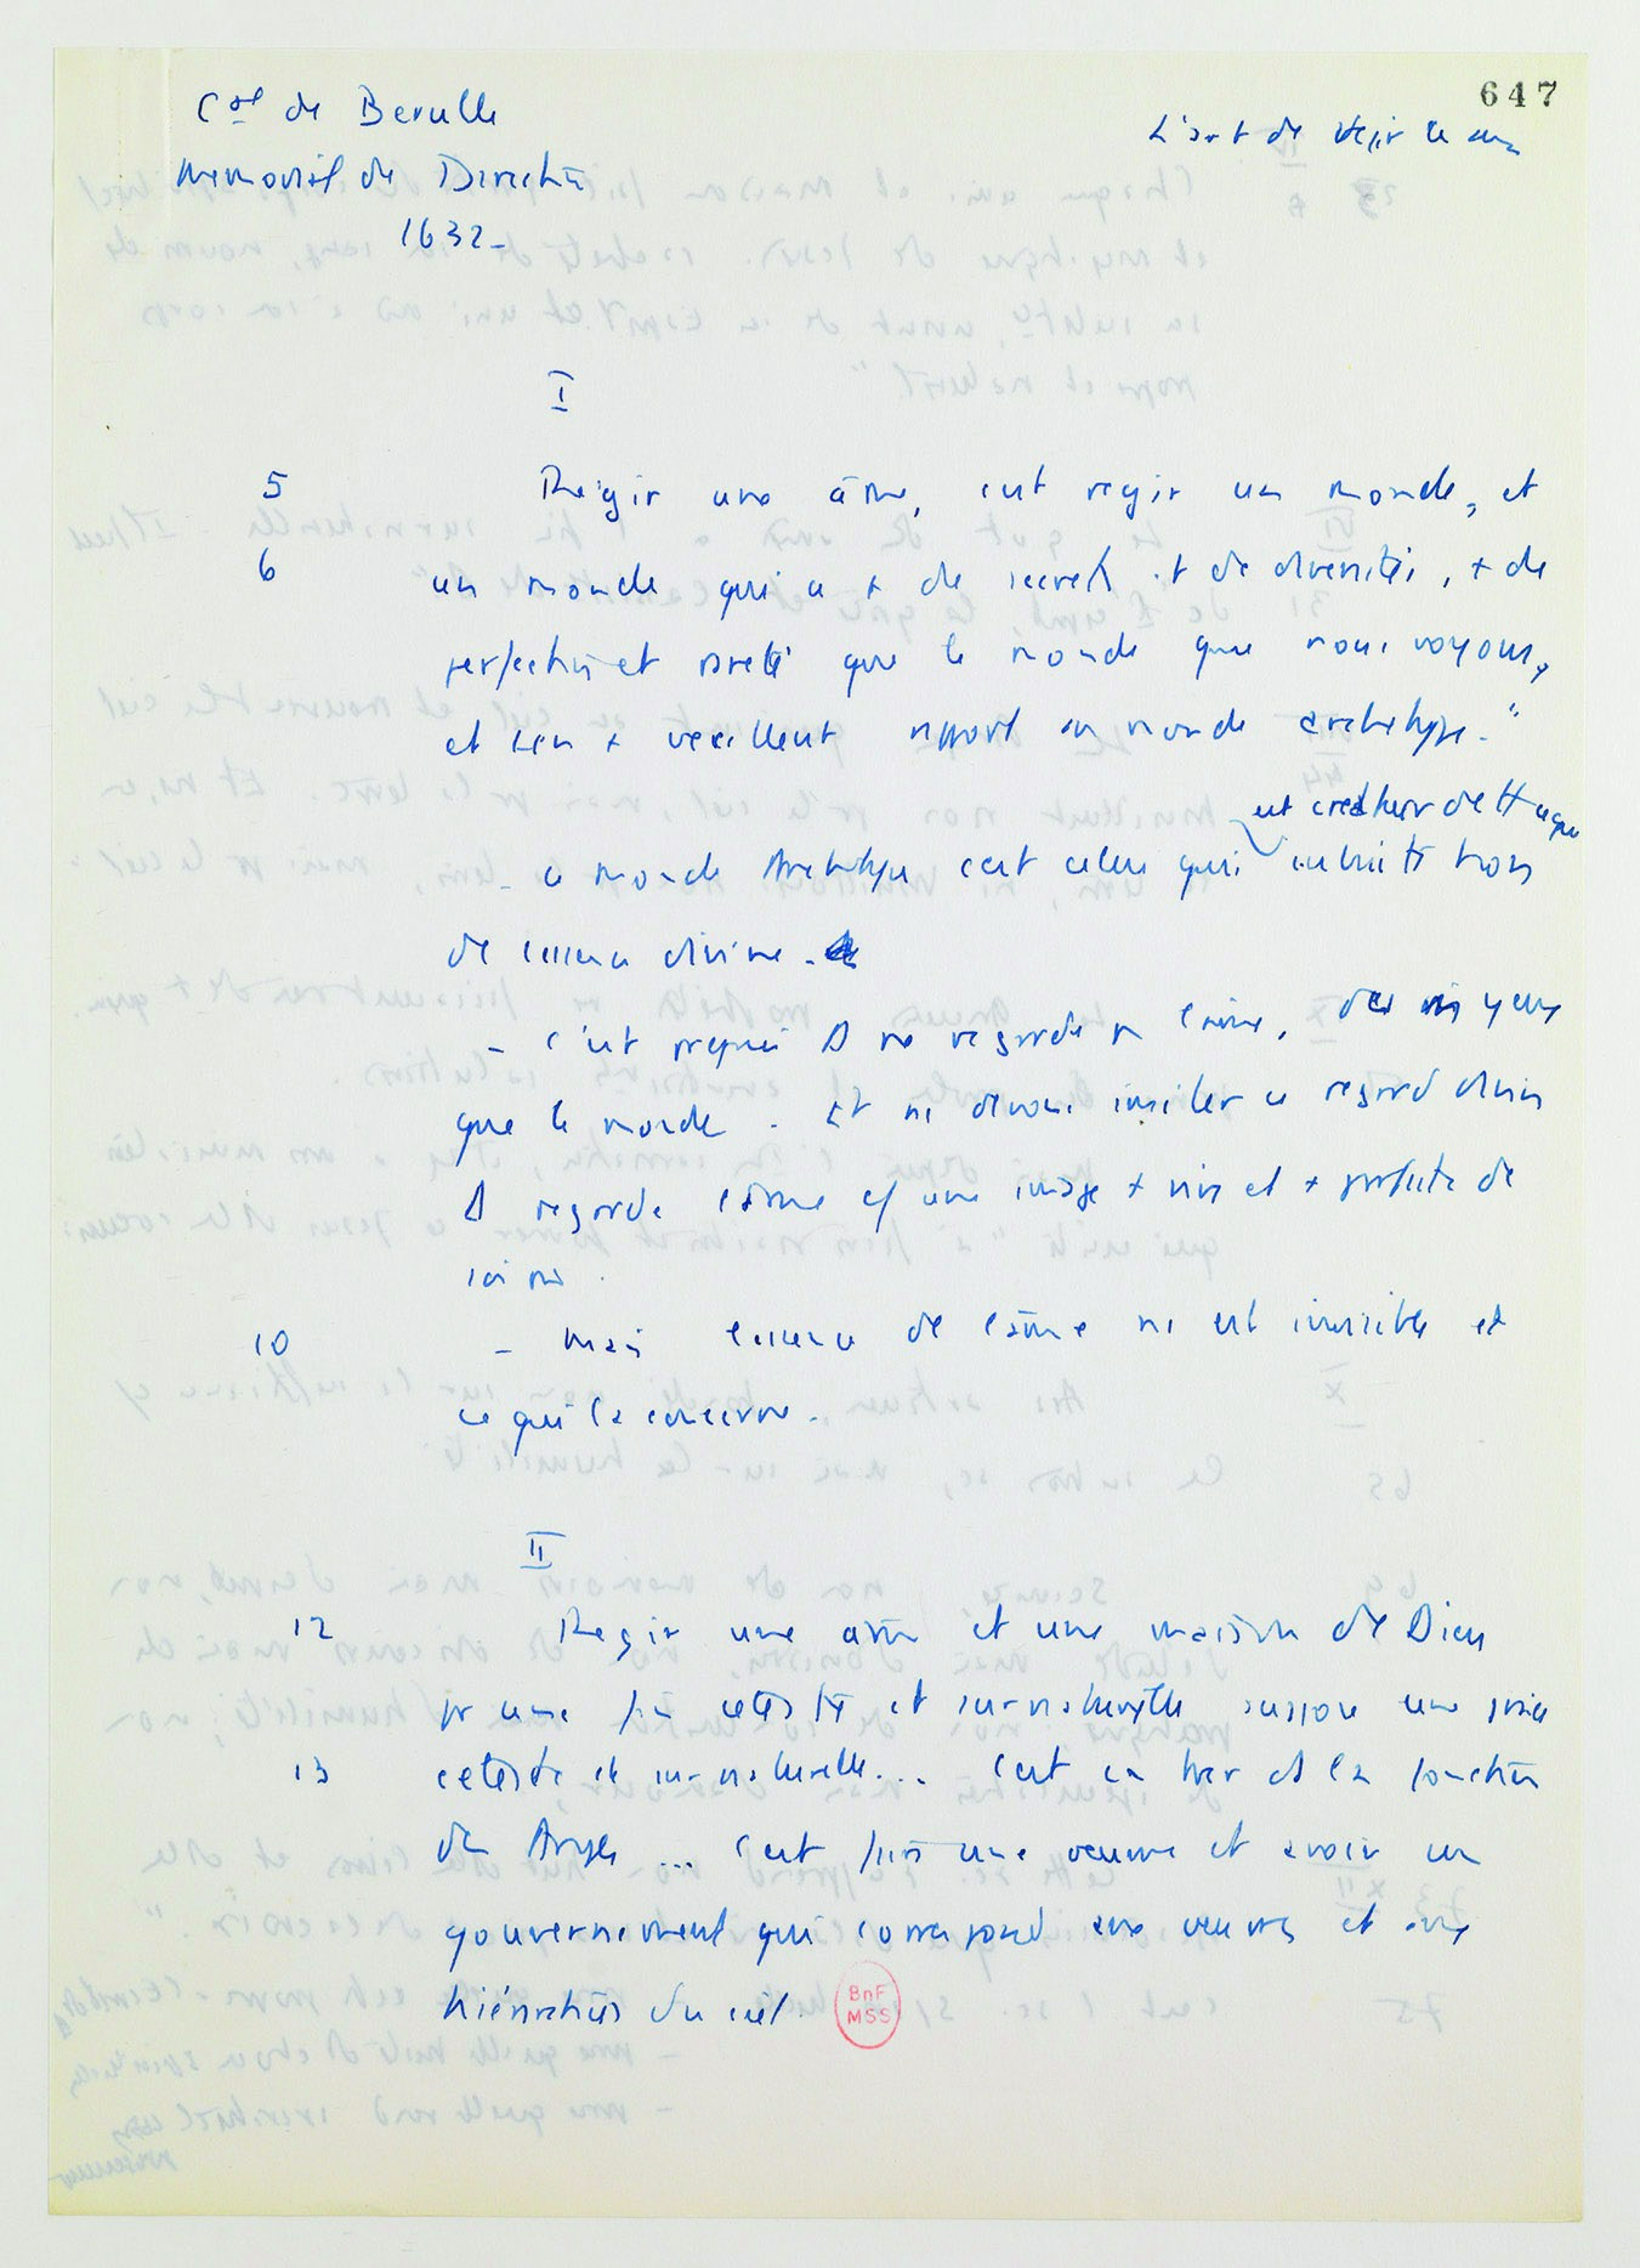 647
Cal de Berulle
L'art de régir les âmes
Memorial de Direction
1632-
I
5 Régir une âme, c'est regir un monde, et
6 un monde qui a + de secrets et de diversités, + de
perfection et rareté que le monde que nous voyons,
et bien + excellent rapport au monde archetype."
est createur de tt ce que
- ce monde Archetype c'est celui qui subsiste hors
de essence divine.
- C'est pquoi D ne regarde l'âme, des yeux
que le monde. Et ns devons imiter ce regard divin
D regarde l'âme cf une image + vive et + parfaite de
soi mê.
10 - Mais l'essence de l'âme ns est invisible et
ce qui la concerne.
II
12 Regir une âme et une maison de Dieu
pr une fin céleste et surnaturelle suppose une grâce
13 céleste et surnaturelle... C'est la fonction
des Anges ... C'est faire une oeuvre et avoir un
gouvernement qui correspond aux oeuvres et aux
hiérarchies du ciel.
BnF
MSS